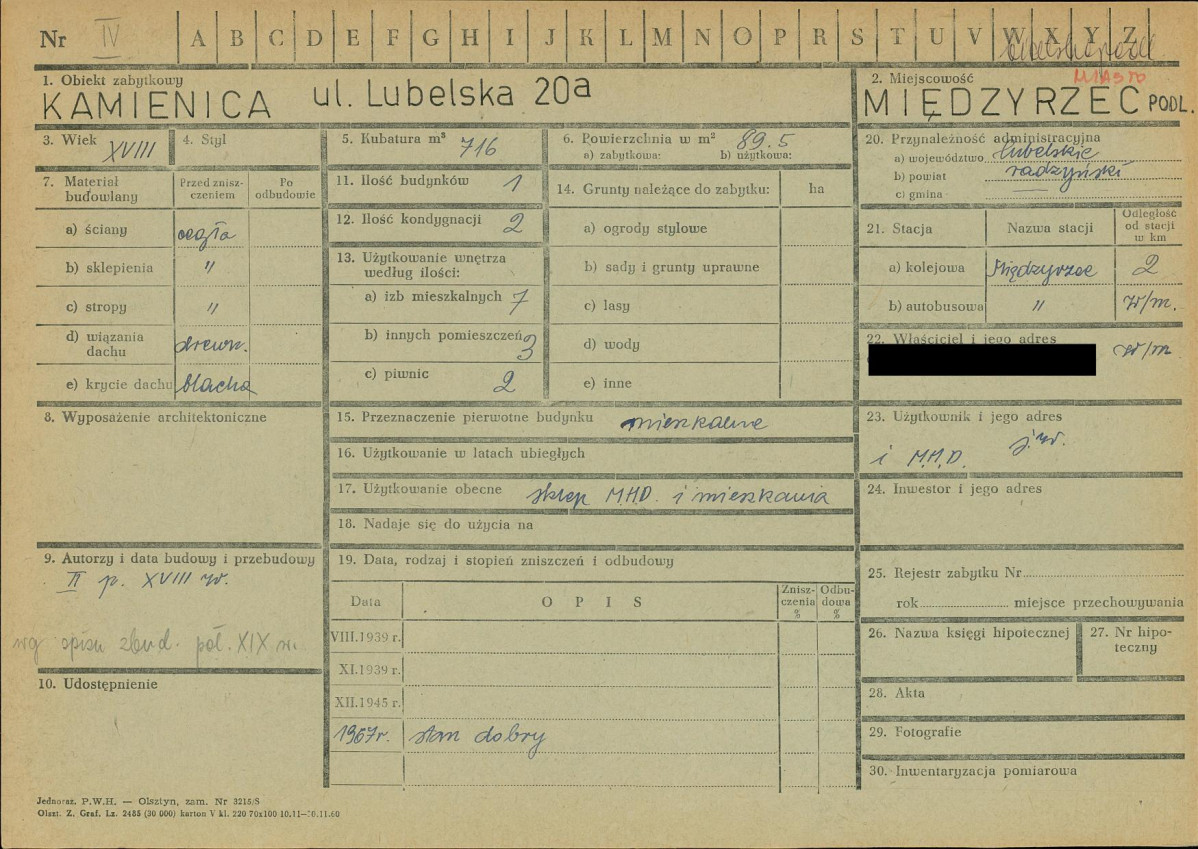 Nr IV A B C D E F G H I J K L M N O P R S T U V W X Y Z
1. Obiekt zabytkowy
KAMIENICA ul. Lubelska 20a
2. Miejscowość
MIASTO
MIĘDZYRZEC PODL.
3. Wiek XVIII
4. Styl
5. Kubatura m³ 716
6. Powierzchnia w m² 89.5
a) zabytkowa: b) użytkowa:
7. Materiał budowlany
Przed zniszczeniem
Po odbudowie
a) ściany cegła
b) sklepienia "
c) stropy "
d) wiązania dachu drewn.
e) krycie dachu blacha
8. Wyposażenie architektoniczne
9. Autorzy i data budowy i przebudowy
II p. XVIII w.
wg opisu zbud. poł. XIX w.
10. Udostępnienie
11. Ilość budynków 1
12. Ilość kondygnacji 2
13. Użytkowanie wnętrza według ilości:
a) izb mieszkalnych 7
b) innych pomieszczeń 3
c) piwnic 2
14. Grunty należące do zabytku: ha
a) ogrody stylowe
b) sady i grunty uprawne
c) lasy
d) wody
e) inne
15. Przeznaczenie pierwotne budynku mieszkalne
16. Użytkowanie w latach ubiegłych
17. Użytkowanie obecne sklep M.H.D. i mieszkania
18. Nadaje się do użycia na
19. Data, rodzaj i stopień zniszczeń i odbudowy
Data
OPIS
Zniszczenia %
Odbudowa %
VIII.1939 r.
XI.1939 r.
XII.1945 r.
1967r. stan dobry
20. Przynależność administracyjna
a) województwo lubelskie
b) powiat radzyński
c) gmina
21. Stacja
Nazwa stacji
Odległość od stacji w km
a) kolejowa Międzyrzec 2
b) autobusowa " w/m.
22. Właściciel i jego adres
w/m
23. Użytkownik i jego adres
j.w.
i M.H.D.
24. Inwestor i jego adres
25. Rejestr zabytku Nr
rok miejsce przechowywania
26. Nazwa księgi hipotecznej
27. Nr hipoteczny
28. Akta
29. Fotografie
30. Inwentaryzacja pomiarowa
Jednoraz. P.W.H. — Olsztyn, zam. Nr 3215/S
Olszt. Z. Graf. Lz. 2485 (30 000) karton V kl. 220 70x100 10.11—10.11.60